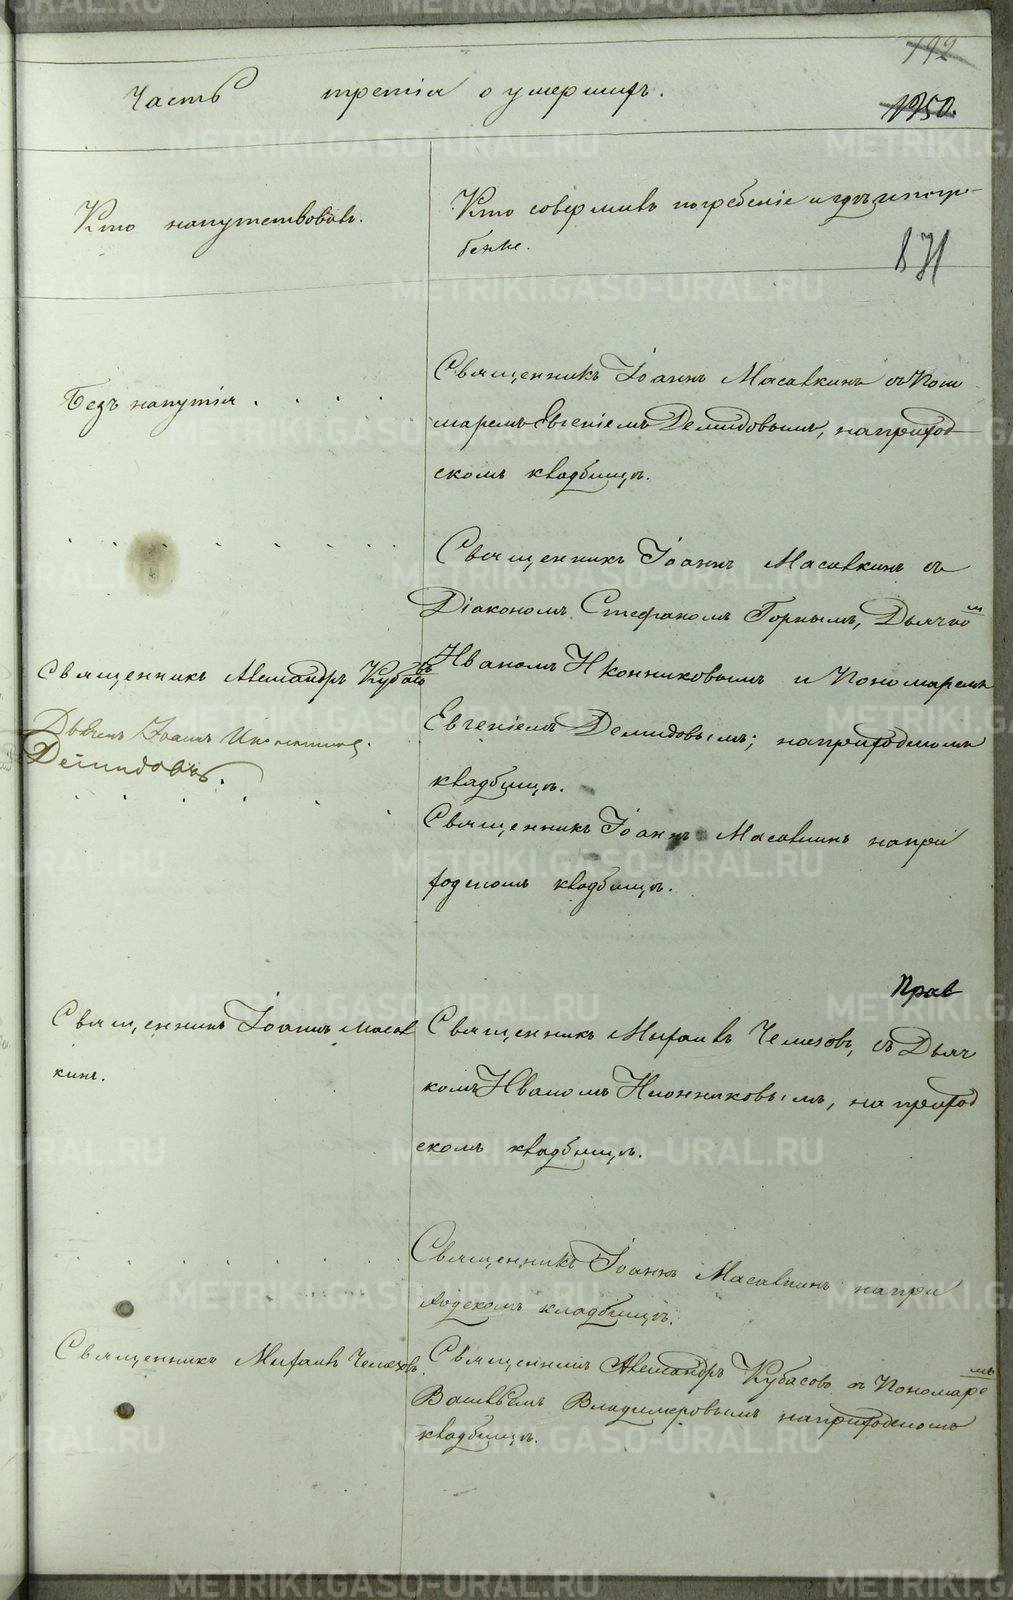 192
1250.
Часть третія о умершихъ.
871
Кто напутствовалъ.
Кто совершалъ погребеніе и гдѣ погре-
бены.
Безъ напутія . . . .
Священникъ Іоаннъ Масавкинъ съ Поно
маремъ Евгеніемъ Демидовымъ, на приход
скомъ кладбищѣ.
Священникъ Іоаннъ Масавкинъ съ
Діакономъ Стефаномъ Горнымъ, Дьячкомъ
Иваномъ Иконниковымъ и Пономаремъ
Евгеніемъ Демидовымъ; на приходскомъ
кладбищѣ.
Священникъ Александръ Кубасовъ
Дьячекъ Іоаннъ Иконниковъ.
Демидовъ.
Священникъ Іоаннъ Масавкинъ на при
ходскомъ кладбищѣ.
Прав
Священникъ Іоаннъ Масав
кинъ.
Священникъ Михаилъ Чемезовъ, съ Дьяч
комъ Иваномъ Иконниковымъ, на приход
скомъ кладбищѣ.
Священникъ Іоаннъ Масавкинъ на при
ходскомъ кладбищѣ.
Священникъ Михаилъ Чемезовъ.
Священникъ Александръ Кубасовъ съ Пономаремъ
Василіемъ Владимеровымъ на приходскомъ
кладбищѣ.
METRIKI.GASO-URAL.RU